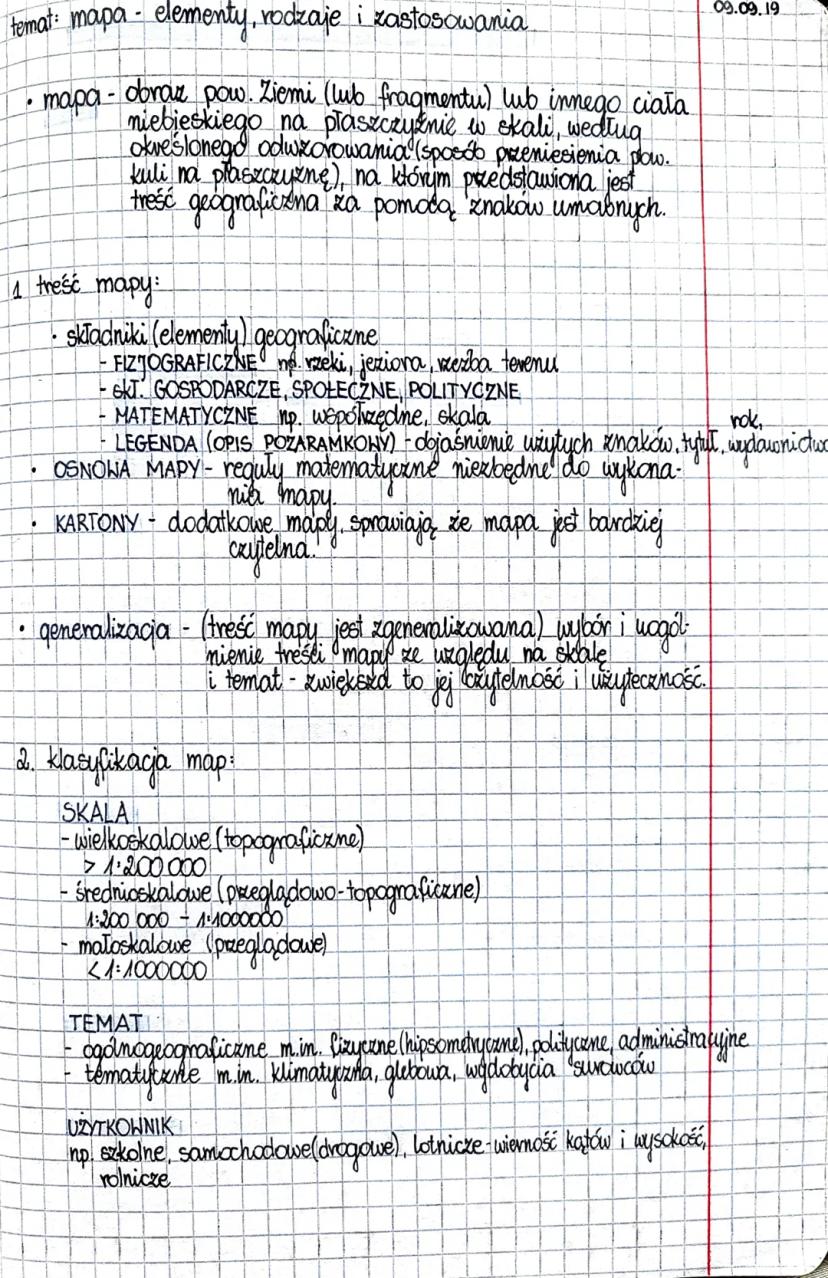 09.09.19
temat: mapa - elementy, rodzaje i zastosowania
• mapa - obraz pow. Ziemi (lub fragmentu) lub innego ciała
niebieskiego na płaszczyźnie w skali, według
określonego odwzorowania (sposób przeniesienia pow.
kuli na płaszczyznę), na którym przedstawiona jest
treść geograficzna za pomocą znaków umownych.
1 treść mapy:
• składniki (elementy) geograficzne
- FIZJOGRAFICZNE np. rzeki, jeziora, rzeźba terenu
- skł. GOSPODARCZE, SPOŁECZNE, POLITYCZNE
- MATEMATYCZNE np. współrzędne, skala
rok,
- LEGENDA (OPIS POZARAMKOWY) - objaśnienie użytych znaków, tytuł, wydawnictwo
• OSNOWA MAPY - reguły matematyczne niezbędne do wykona-
nia mapy.
• KARTONY - dodatkowe mapy, sprawiają że mapa jest bardziej
czytelna.
• generalizacja - (treść mapy jest zgeneralizowana) wybór i uogól-
nienie treści mapy ze względu na skalę
i temat - zwiększa to jej czytelność i użyteczność.
2. klasyfikacja map:
SKALA
- wielkoskalowe (topograficzne)
> 1:200 000
- średnioskalowe (przeglądowo-topograficzne)
1:200 000 - 1:1000000
- małoskalowe (przeglądowe)
< 1:1000000
TEMAT
- ogólnogeograficzne m.in. fizyczne (hipsometryczne), polityczne, administracyjne
- tematyczne m.in. klimatyczna, glebowa, wydobycia surowców
UŻYTKOWNIK
np. szkolne, samochodowe (drogowe), lotnicze - wierność kątów i wysokość,
rolnicze